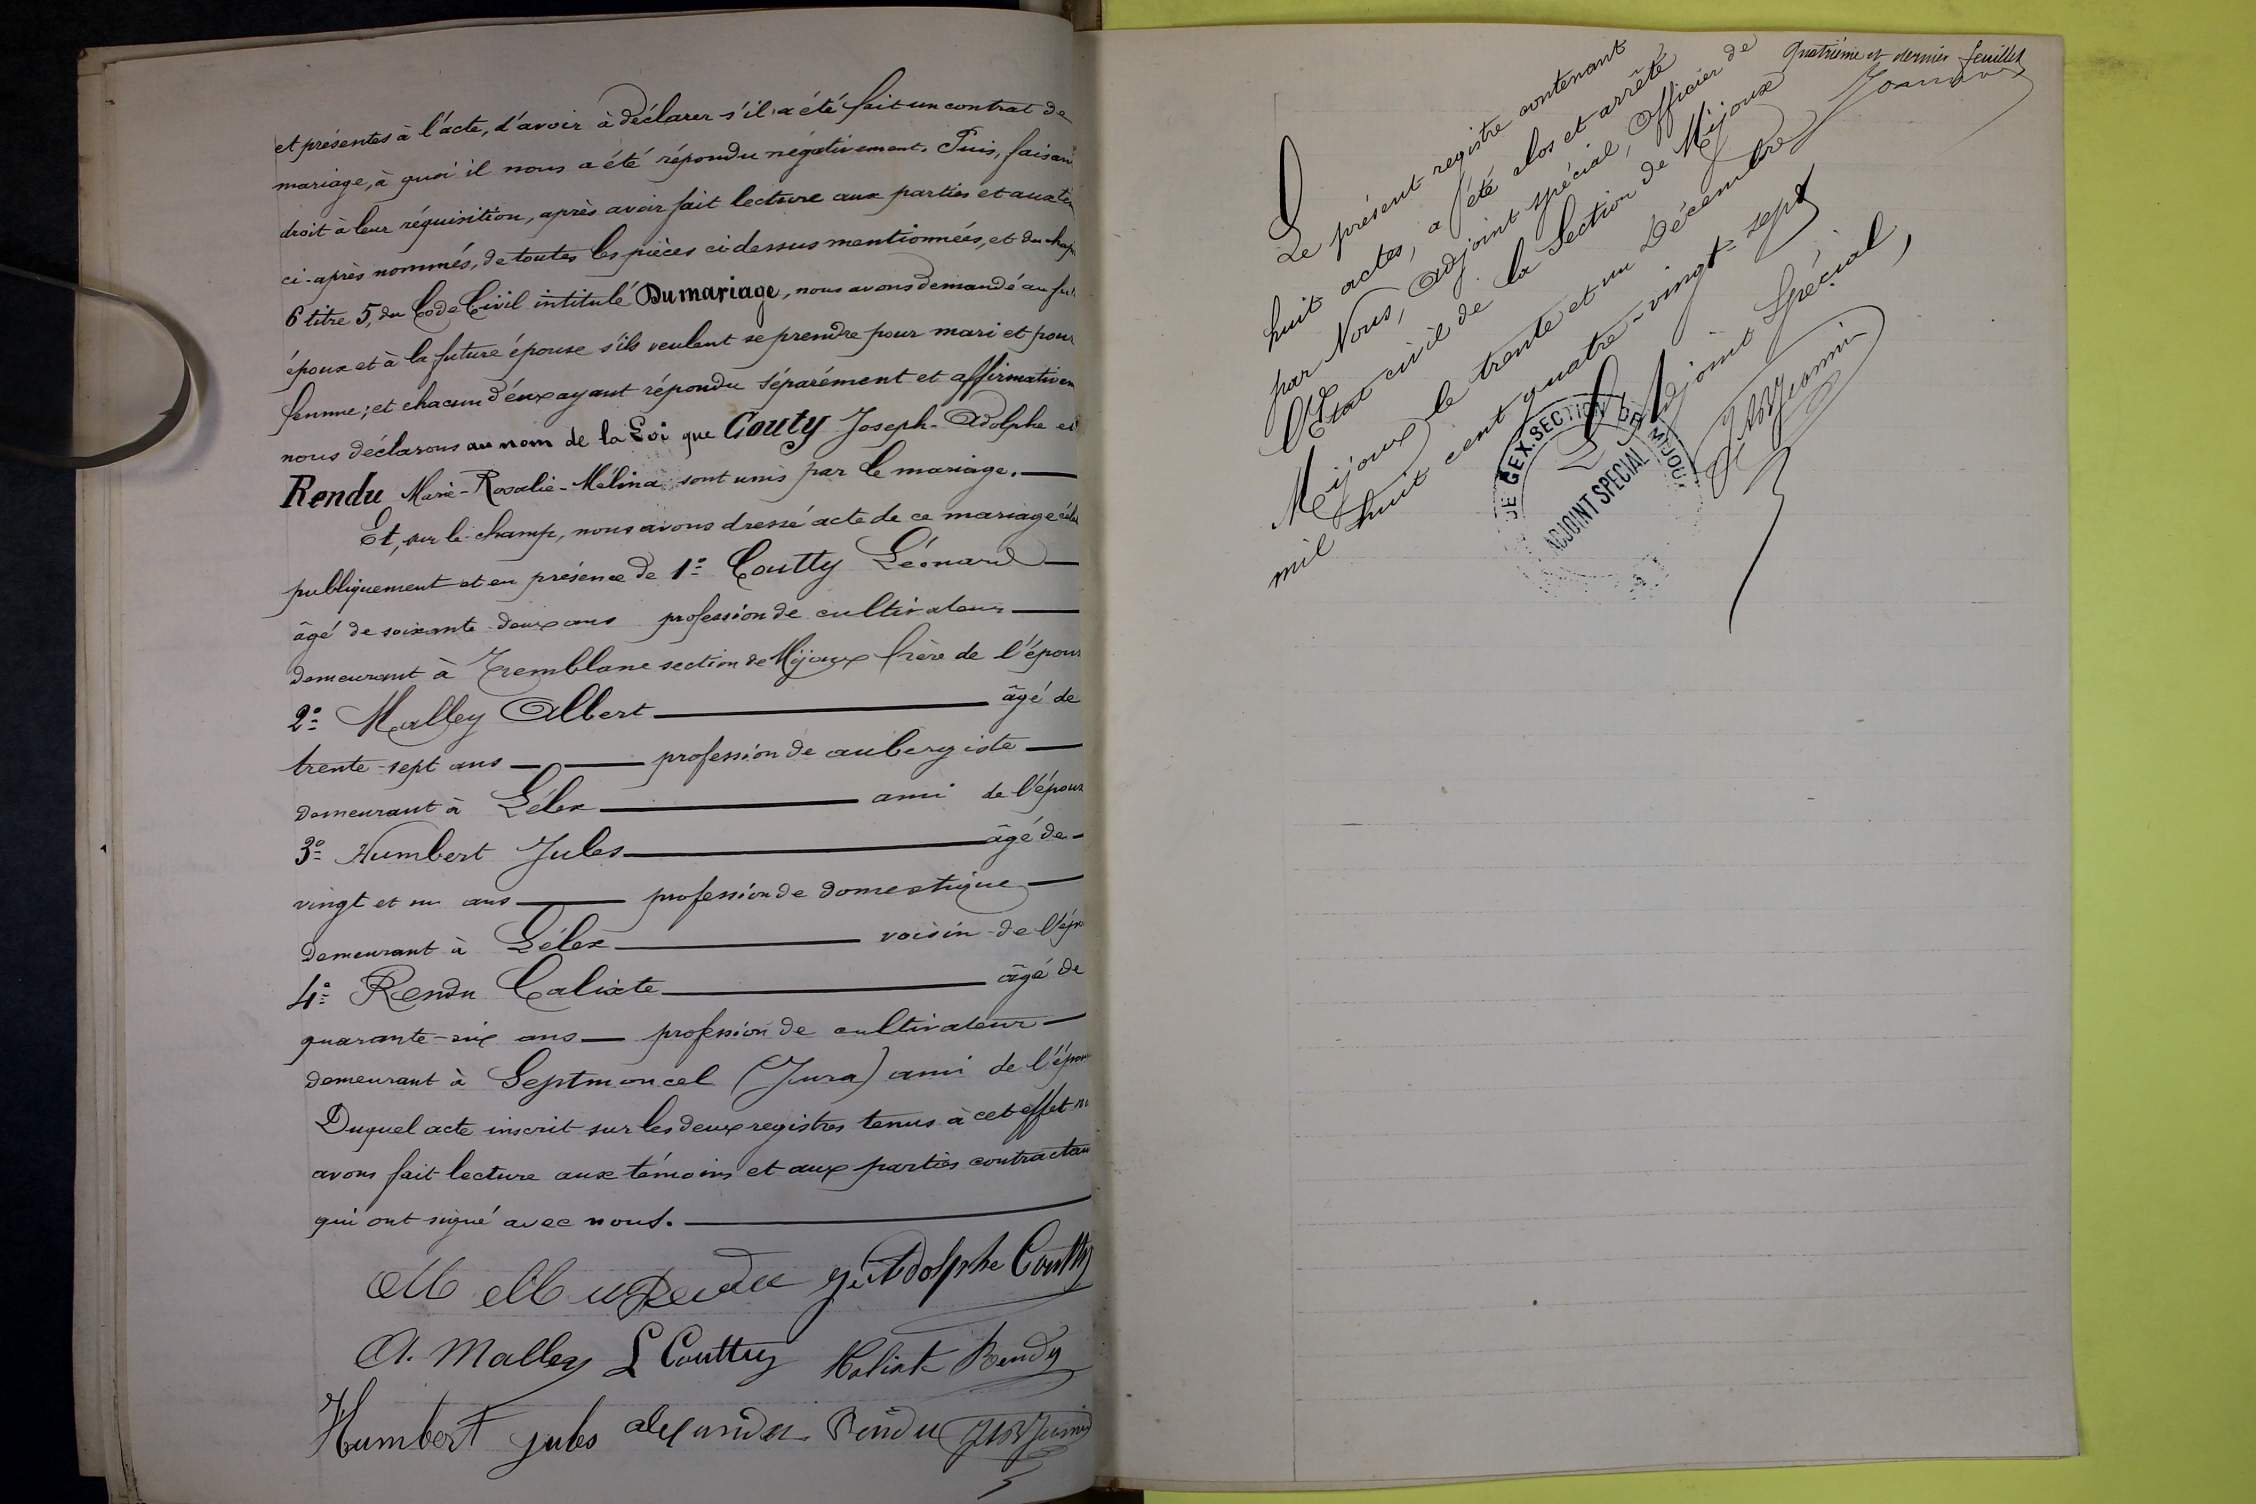 et présentes à l'acte, d'avoir à déclarer s'il a été fait un contrat de
mariage, à quoi il nous a été répondu négativement. Puis, faisan
droit à leur réquisition, après avoir fait lecture aux parties et aux té
ci-après nommés, de toutes les pièces ci dessus mentionnées, et du chap
6 titre 5, du Code Civil intitulé Du mariage, nous avons demandé au fut
époux et à la future épouse s'ils veulent se prendre pour mari et pour
femme; et chacun d'eux ayant répondu séparément et affirmativem
nous déclarons au nom de la Loi que Couty Joseph-Adolphe et
Rendu Marie-Rosalie-Mélina sont unis par le mariage.
Et, sur le champ, nous avons dressé acte de ce mariage célé
publiquement et en présence de 1° Coutty Léonard
âgé de soixante deux ans profession de cultivateur
demeurant à Tremblane section de Mijoux frère de l'épou
2° Malley Albert âgé de
trente-sept ans profession de aubergiste
demeurant à Lélex ami de l'épou
3° Humbert Jules âgé de
vingt et un ans profession de domestique
demeurant à Lélex voisin de l'ép
4° Rendu Calixte âgé de
quarante-six ans profession de cultivateur
demeurant à Septmoncel (Jura) ami de l'épou
Duquel acte inscrit sur les deux registres tenus à cet effet n
avons fait lecture aux témoins et aux parties contractan
qui ont signé avec nous.
Rendu Adolphe Coutty
A. Malley L Coutty Kalixte Rendu
Humbert jules alexandre Rendu
Quatrième et dernier feuillet
Le présent registre contenant
huit actes, a été clos et arrêté
par Nous, Adjoint spécial, Officier de
l'Etat civil de la Section de Mijoux
Mijoux le trente et un Décembre
mil huit cent quatre-vingt-sept
L'Adjoint Spécial,
DE GEX. SECTION DE MIJOUX
ADJOINT SPECIAL